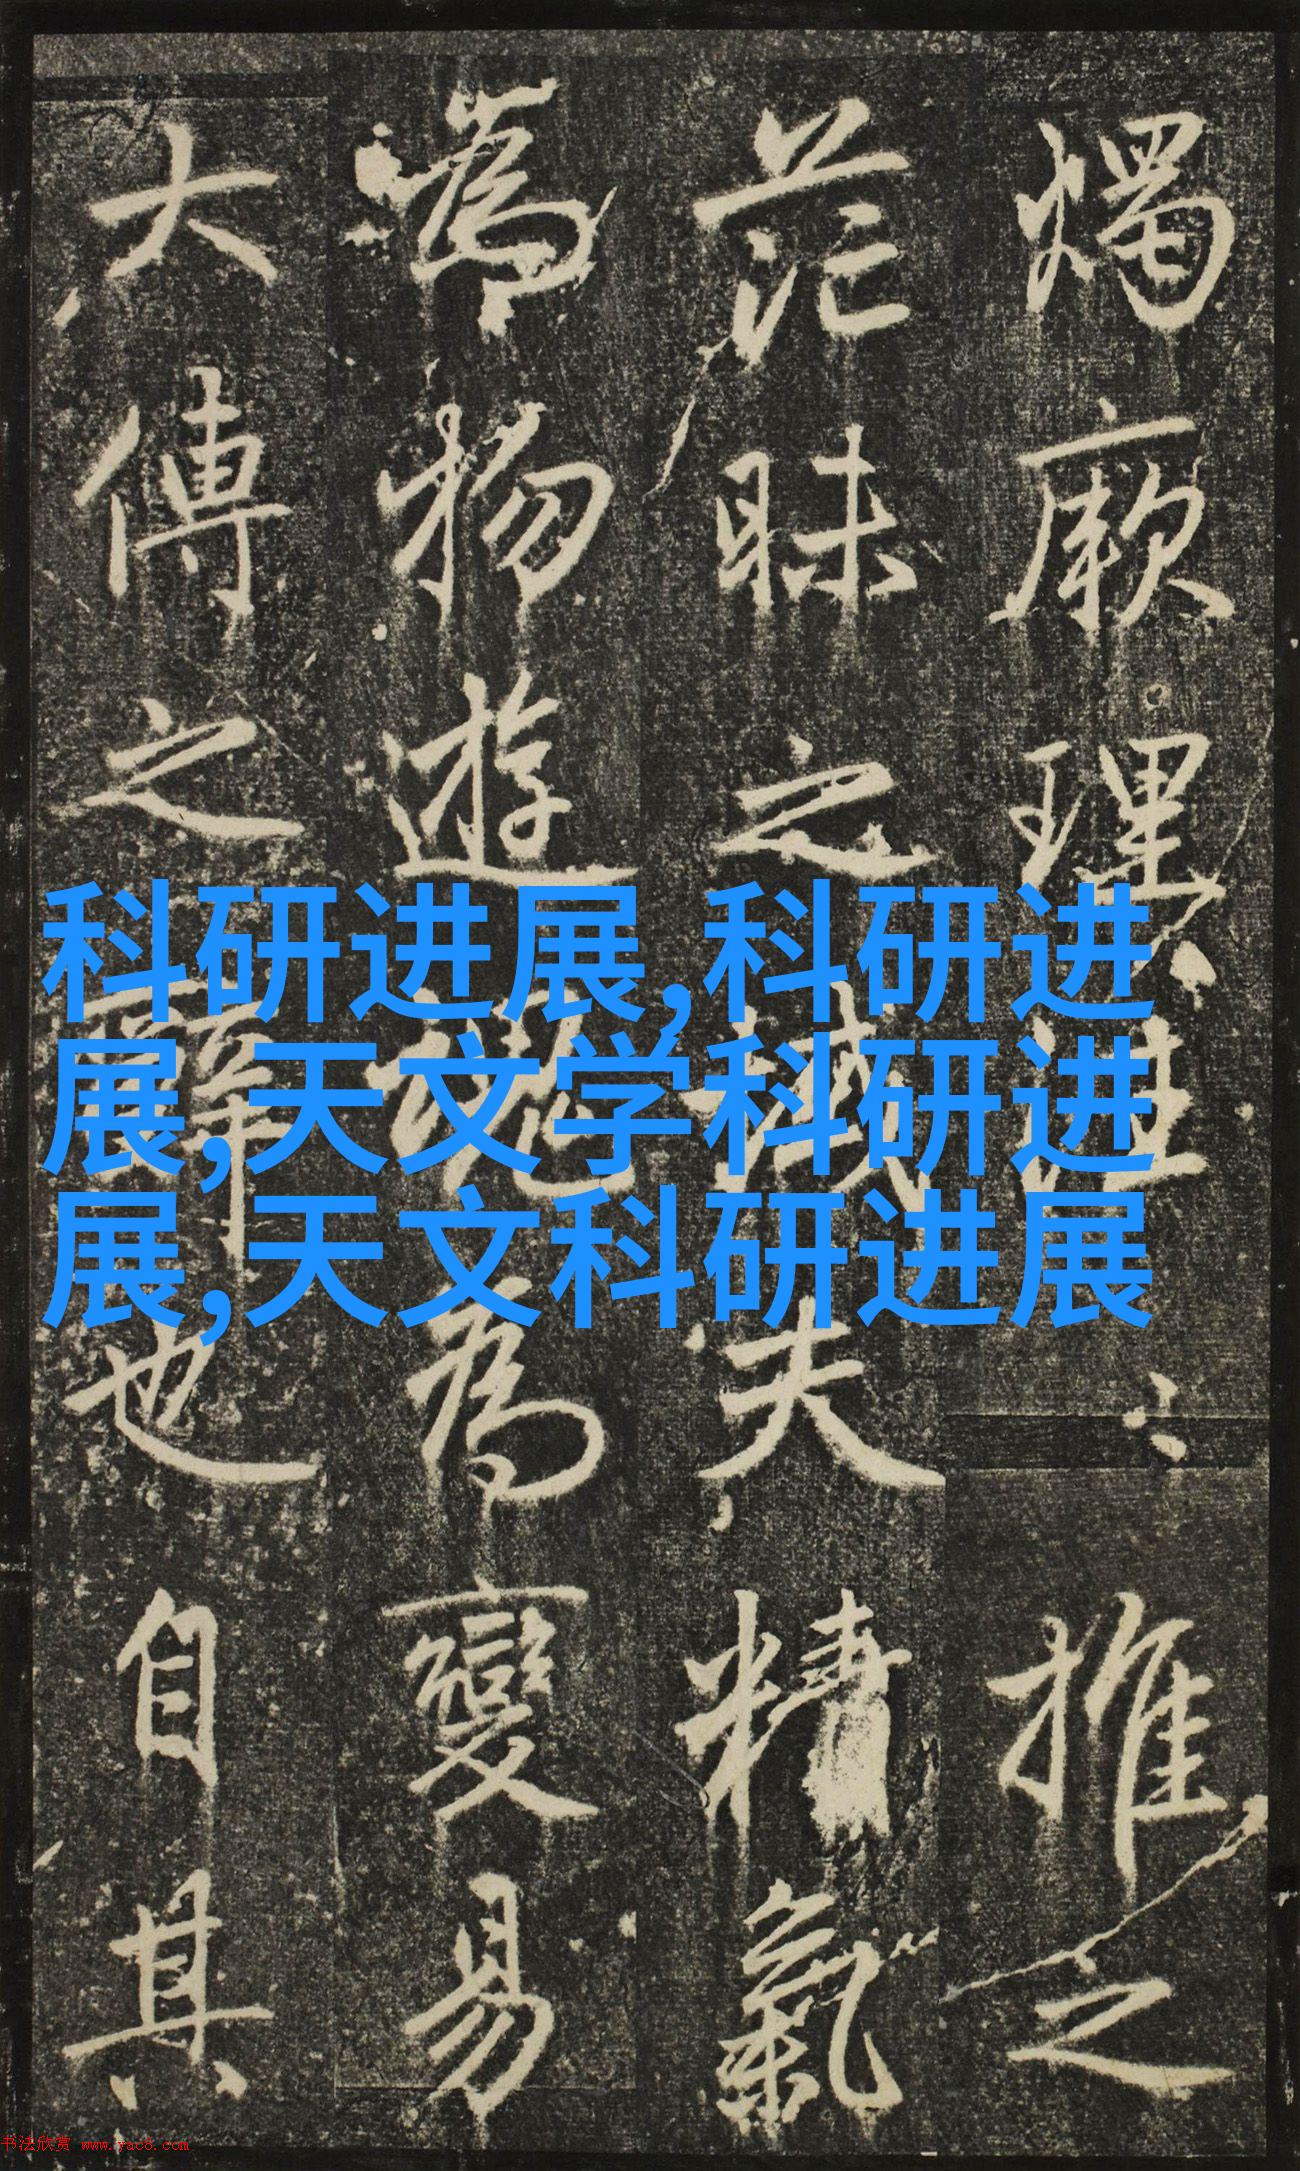 燭厥理推之
茫昧之域夫精氣
為物遊魂為變易
大傳之辭也自其
科研进展,科研进
展,天文学科研进
展,天文科研进展
书法欣赏 www.yac8.com